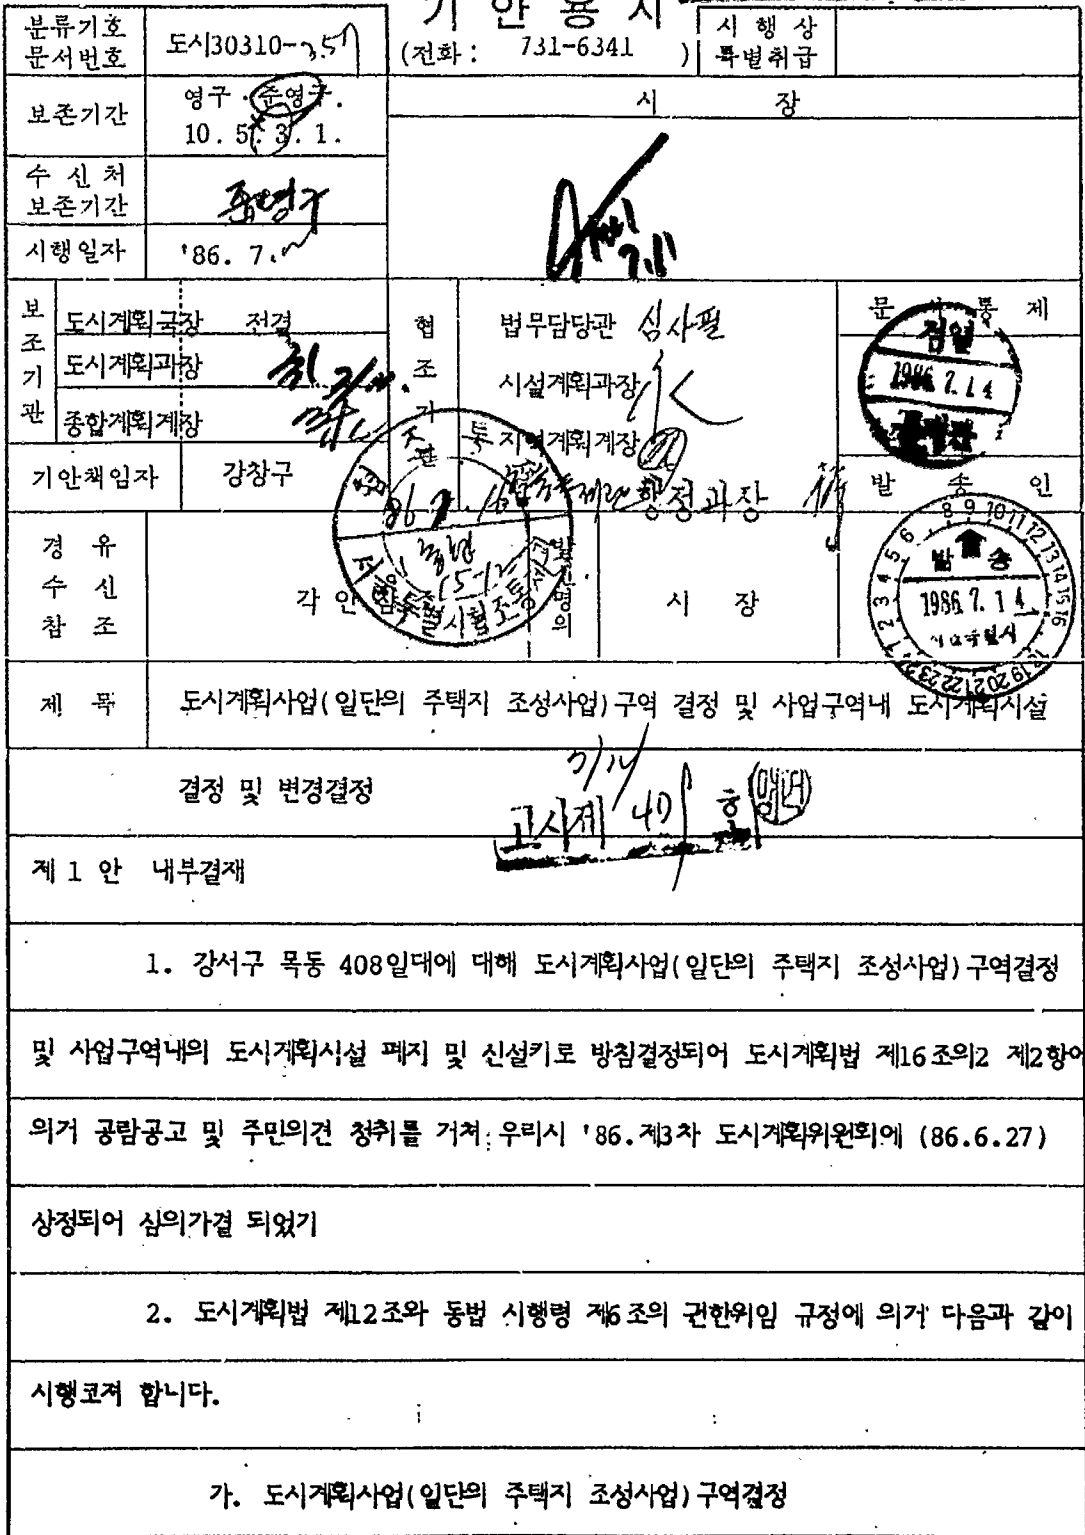 기 안 용 지
분류기호
문서번호
도시30310-
(전화: 731-6341 )
시 행 상
특별취급
보존기간
영구 · 준영구.
10. 5. 3. 1.
시 장
수 신 처
보존기간
준영구
시행일자
'86. 7.
보조기관
도시계획국장 전결
도시계획과장
종합계획계장
협조기관
법무담당관 심사필
시설계획과장
지역계획계장
행정과장
문 서 통 제
검열
1986. 7. 14
기안책임자
강창구
발 송 인
발 송
1986. 7. 14
경 유
수 신
참 조
각 안 참 조
발신명의
시 장
제 목
도시계획사업(일단의 주택지 조성사업)구역 결정 및 사업구역내 도시계획시설
결정 및 변경결정
7/14
고시제
제 1 안 내부결재
1. 강서구 목동 408일대에 대해 도시계획사업(일단의 주택지 조성사업)구역결정
및 사업구역내의 도시계획시설 폐지 및 신설키로 방침결정되어 도시계획법 제16조의2 제2항에
의거 공람공고 및 주민의견 청취를 거쳐 우리시 '86.제3차 도시계획위원회에 (86.6.27)
상정되어 심의가결 되었기
2. 도시계획법 제12조와 동법 시행령 제6조의 권한위임 규정에 의거 다음과 같이
시행코져 합니다.
가. 도시계획사업(일단의 주택지 조성사업)구역결정